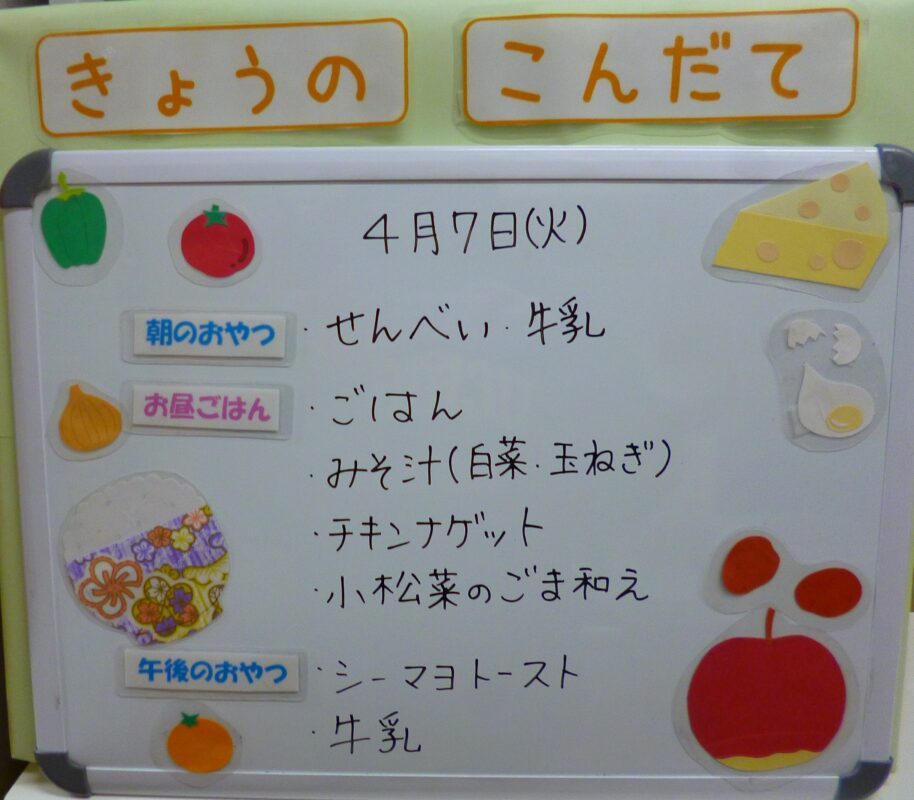 きょうの こんだて
4月7日(火)
朝のおやつ ・せんべい・牛乳
お昼ごはん ・ごはん
・みそ汁(白菜・玉ねぎ)
・チキンナゲット
・小松菜のごま和え
午後のおやつ ・シーマヨトースト
・牛乳